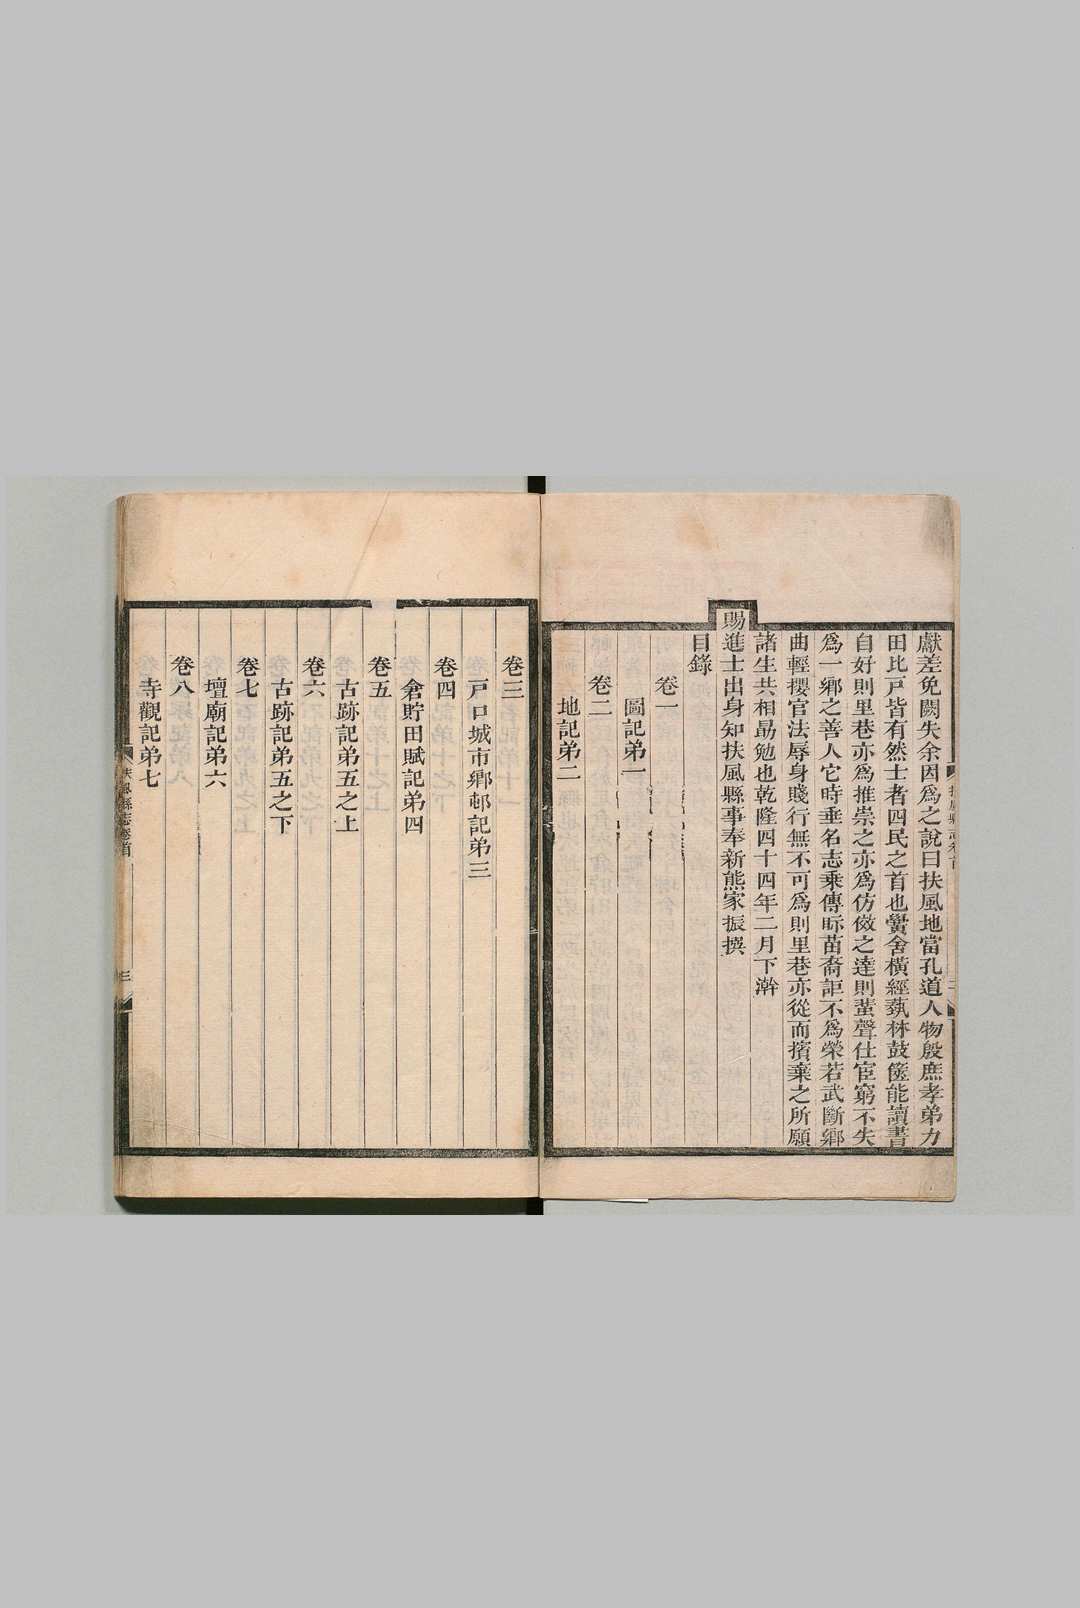 獻差免闕失余因爲之說曰扶風地當孔道人物殷庶孝弟力
田比戸皆有然士者四民之首也黌舍橫經蓺林鼓篋能讀書
自好則里巷亦爲推崇之亦爲仿傚之達則蜚聲仕宦窮不失
爲一鄉之善人它時垂名志乘傳眎苗裔詎不爲榮若武斷鄉
曲輕攖官法辱身賤行無不可爲則里巷亦從而擯棄之所願
諸生共相勗勉也乾隆四十四年二月下澣
賜進士出身知扶風縣事奉新熊家振撰
目錄
卷一
圖記弟一
卷二
地記弟二
卷三
戸口城市鄉邨記弟三
卷四
倉貯田賦記弟四
卷五
古跡記弟五之上
卷六
古跡記弟五之下
卷七
壇廟記弟六
卷八
寺觀記弟七
扶風縣志卷首
三